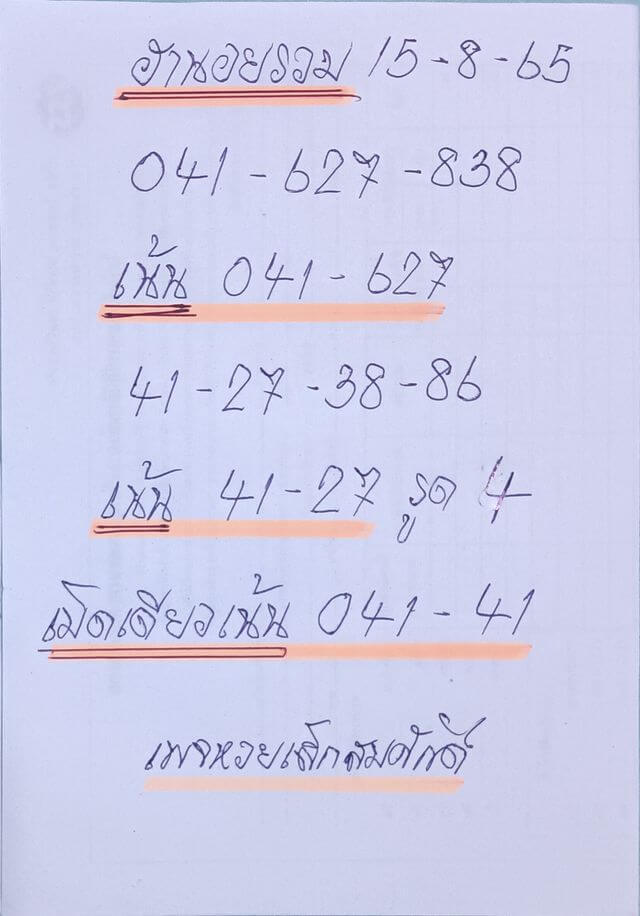 ฮานอยรวม 15-8-65
041-627-838
เน้น 041-627
41-27-38-86
เน้น 41-27 รูด 4
เม็ดเดียวเน้น 041-41
เพจหวยเล็กสมศักดิ์